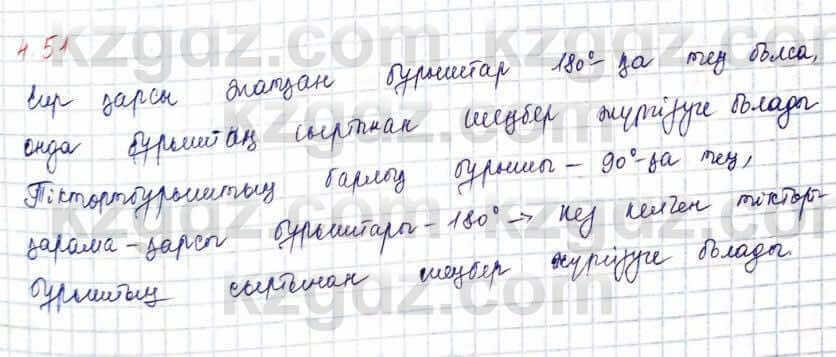 4.51
Бир қарсы жатқан бұрыштар 180°-қа тең болса,
онда бұрыштың сыртынан шеңбер жүргізуге болады
Тіктөртбұрыштың барлық бұрышы - 90°-қа тең,
қарама-қарсы бұрыштары - 180° → кез келген тіктөрт-
бұрыштың сыртынан шеңбер жүргізуге болады.
kzgdz.com